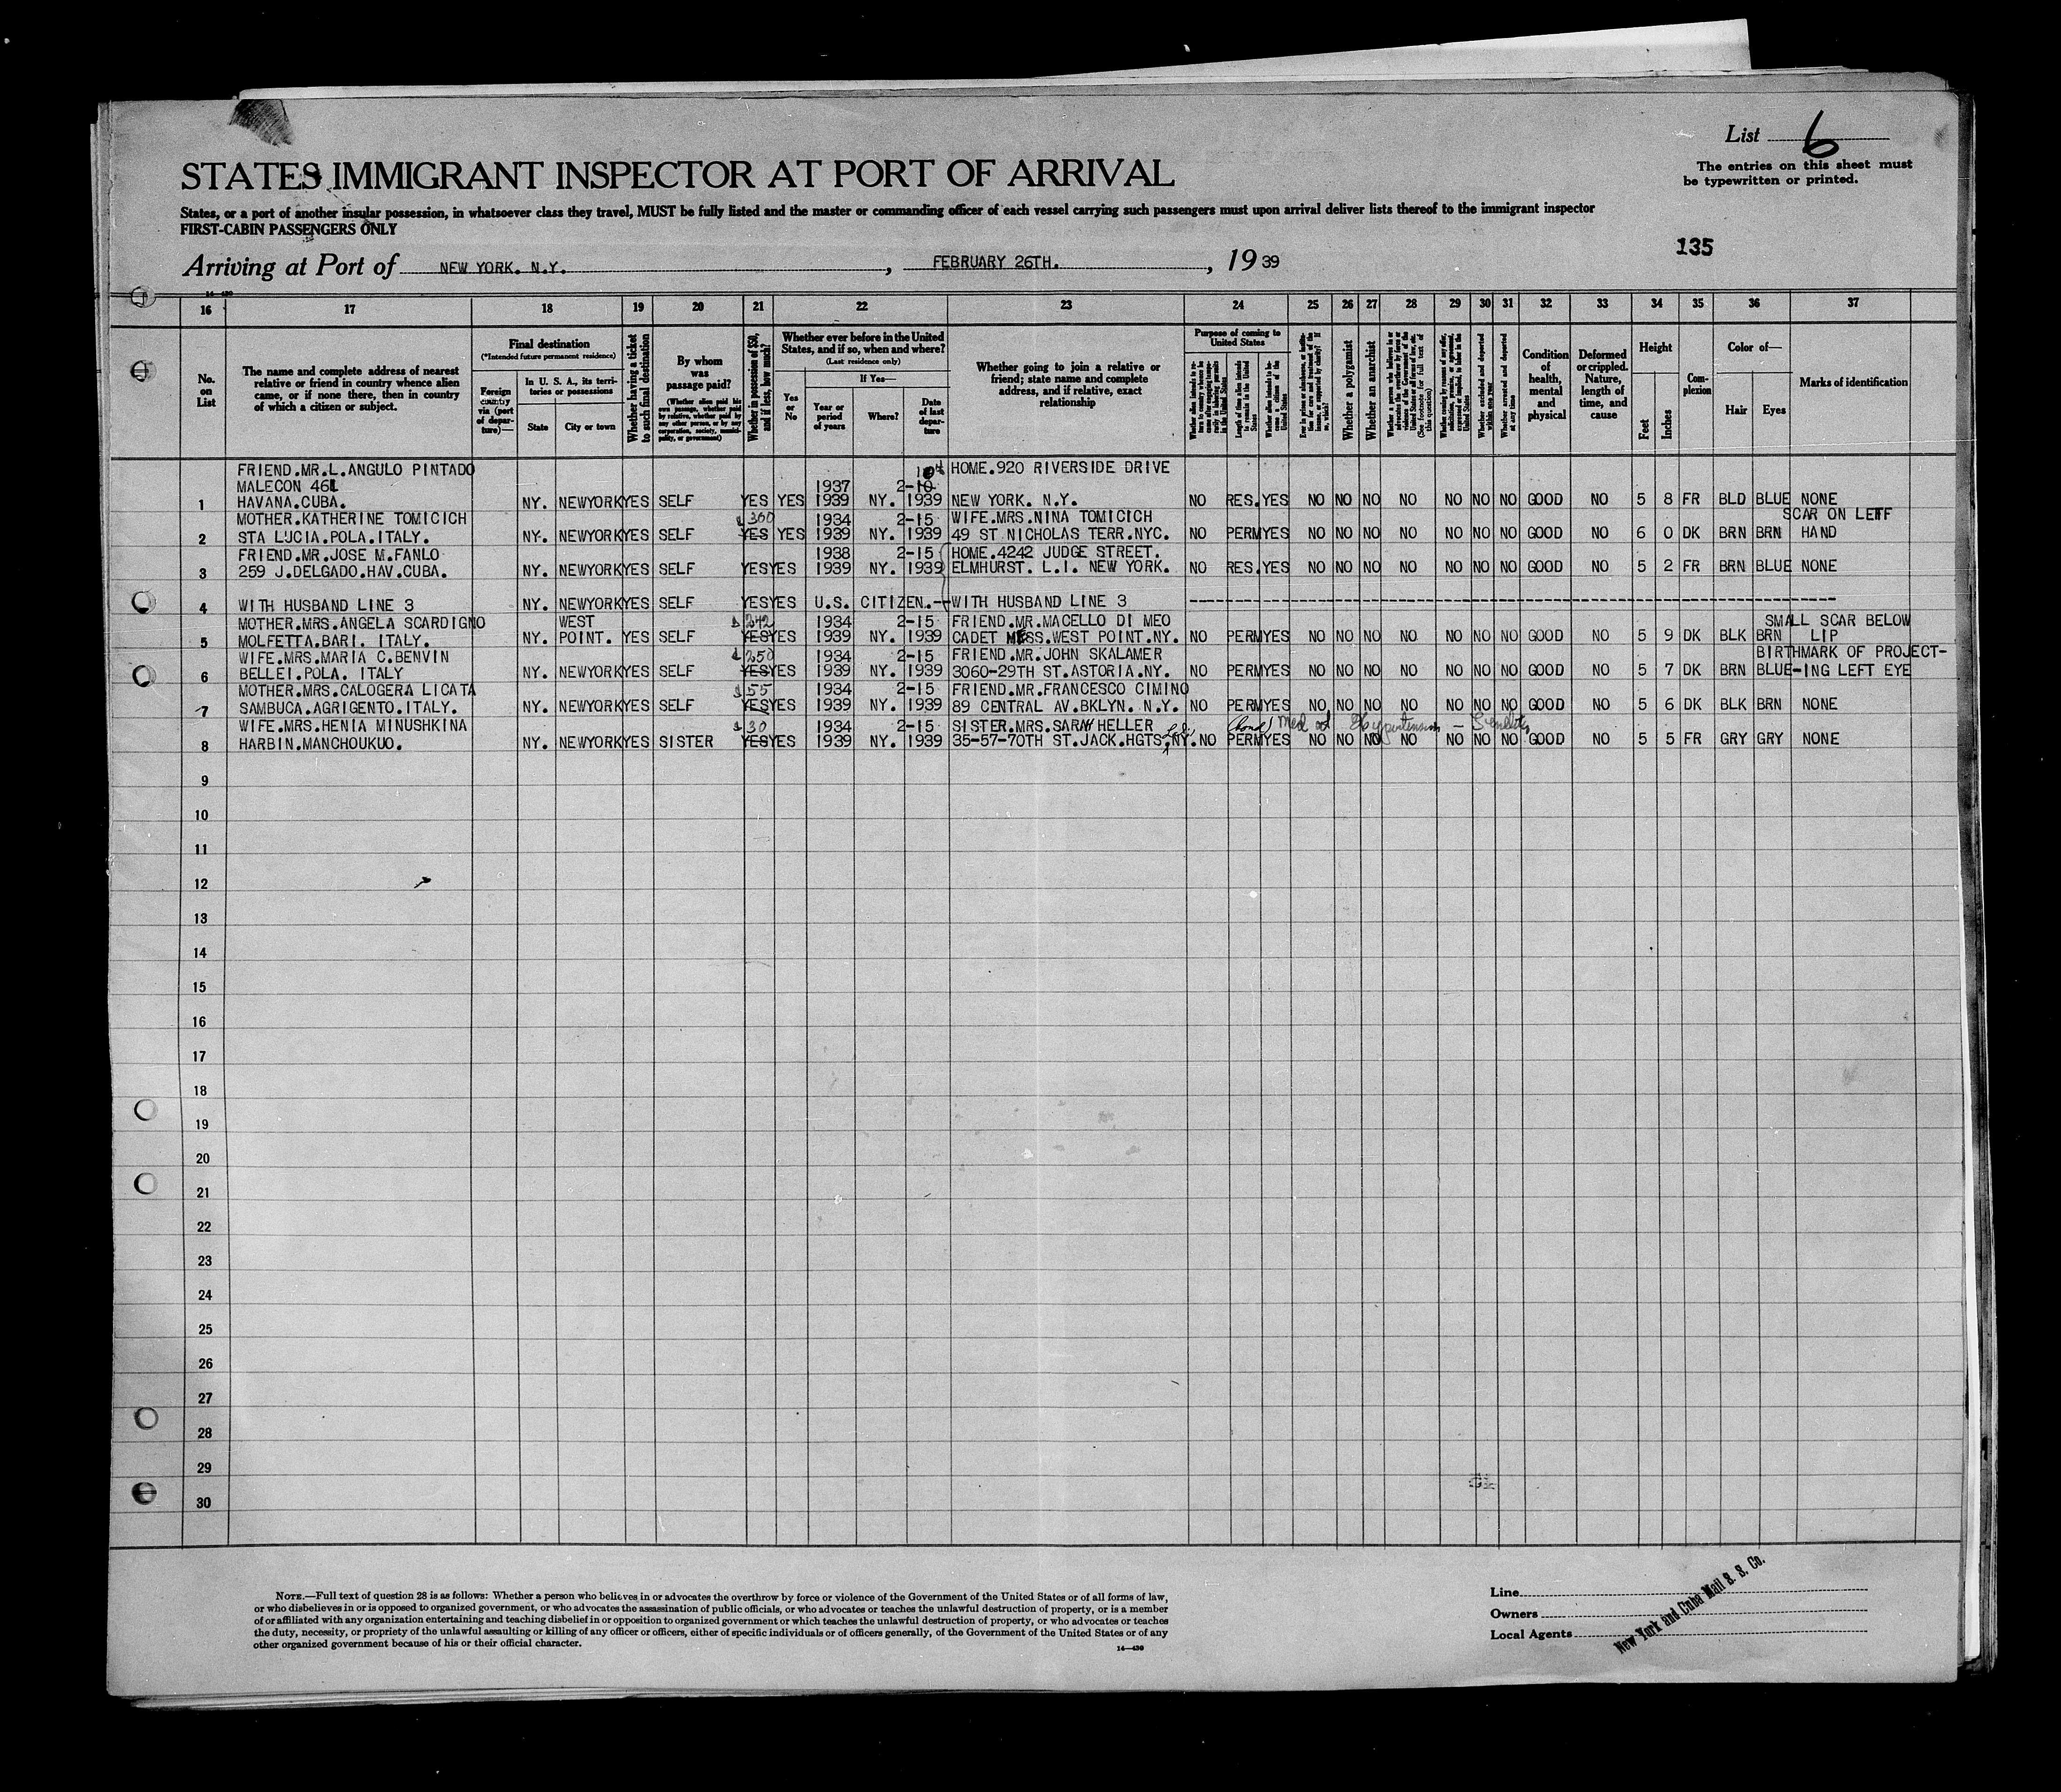 List 6
The entries on this sheet must
be typewritten or printed.
STATES IMMIGRANT INSPECTOR AT PORT OF ARRIVAL
States, or a port of another insular possession, in whatsoever class they travel, MUST be fully listed and the master or commanding officer of each vessel carrying such passengers must upon arrival deliver lists thereof to the immigrant inspector
FIRST-CABIN PASSENGERS ONLY
135
Arriving at Port of NEW YORK. N.Y. , FEBRUARY 26TH. , 19 39
16 17 18 19 20 21 22 23 24 25 26 27 28 29 30 31 32 33 34 35 36 37
No. on List
The name and complete address of nearest relative or friend in country whence alien came, or if none there, then in country of which a citizen or subject.
Final destination
(*Intended future permanent residence)
Foreign country via (port of departure)—
In U. S. A., its territories or possessions
State
City or town
Whether having a ticket to such final destination
By whom was passage paid?
(Whether alien paid his own passage, whether paid by relative, whether paid by any other person, or by any corporation, society, municipality, or government)
Whether in possession of $50, and if less, how much?
Whether ever before in the United States, and if so, when and where?
(Last residence only)
Yes or No
If Yes—
Year or period of years
Where?
Date of last departure
Whether going to join a relative or friend; state name and complete address, and if relative, exact relationship
Purpose of coming to United States
Length of time alien intends to remain in the United States
Whether alien intends to become a citizen of the United States
Whether a polygamist
Whether an anarchist
(See footnote for full text of this question)
Whether excluded and deported within one year
Whether arrested and deported at any time
Condition of health, mental and physical
Deformed or crippled. Nature, length of time, and cause
Height
Feet
Inches
Complexion
Color of—
Hair
Eyes
Marks of identification
FRIEND.MR.L.ANGULO PINTADO HOME.920 RIVERSIDE DRIVE
MALECON 461 1937 2-10
1 HAVANA.CUBA. NY. NEWYORK YES SELF YES YES 1939 NY. 1939 NEW YORK. N.Y. NO RES. YES NO NO NO NO NO NO NO GOOD NO 5 8 FR BLD BLUE NONE
MOTHER.KATHERINE TOMICICH 300 1934 2-15 WIFE.MRS.NINA TOMICICH SCAR ON LEFT
2 STA LUCIA.POLA.ITALY. NY. NEWYORK YES SELF YES YES 1939 NY. 1939 49 ST NICHOLAS TERR.NYC. NO PERM YES NO NO NO NO NO NO NO GOOD NO 6 0 DK BRN BRN HAND
FRIEND.MR.JOSE M.FANLO 1938 2-15 HOME.4242 JUDGE STREET.
3 259 J.DELGADO.HAV.CUBA. NY. NEWYORK YES SELF YES YES 1939 NY. 1939 ELMHURST. L.I. NEW YORK. NO RES. YES NO NO NO NO NO NO NO GOOD NO 5 2 FR BRN BLUE NONE
4 WITH HUSBAND LINE 3 NY. NEWYORK YES SELF YES YES U.S. CITIZEN.-- WITH HUSBAND LINE 3
MOTHER.MRS.ANGELA SCARDIGNO WEST $242 1934 2-15 FRIEND.MR.MACELLO DI MEO SMALL SCAR BELOW
5 MOLFETTA.BARI. ITALY. NY. POINT. YES SELF YES YES 1939 NY. 1939 CADET MESS.WEST POINT.NY. NO PERM YES NO NO NO NO NO NO NO GOOD NO 5 9 DK BLK BRN LIP
WIFE.MRS.MARIA C.BENVIN $250 1934 2-15 FRIEND.MR.JOHN SKALAMER BIRTHMARK OF PROJECT-
6 BELLEI.POLA. ITALY NY. NEWYORK YES SELF YES YES 1939 NY. 1939 3060-29TH ST.ASTORIA.NY. NO PERM YES NO NO NO NO NO NO NO GOOD NO 5 7 DK BRN BLUE -ING LEFT EYE
MOTHER.MRS.CALOGERA LICATA $55 1934 2-15 FRIEND.MR.FRANCESCO CIMINO
7 SAMBUCA.AGRIGENTO.ITALY. NY. NEWYORK YES SELF YES YES 1939 NY. 1939 89 CENTRAL AV.BKLYN. N.Y. NO PERM YES NO NO NO NO NO NO NO GOOD NO 5 6 DK BLK BRN NONE
WIFE.MRS.HENIA MINUSHKINA $30 1934 2-15 SISTER.MRS.SARAH HELLER Med Hypertension - Senility
8 HARBIN.MANCHOUKUO. NY. NEWYORK YES SISTER YES YES 1939 NY. 1939 35-57-70TH ST.JACK.HGTS.NY. NO PERM YES NO NO NO NO NO NO NO GOOD NO 5 5 FR GRY GRY NONE
9
10
11
12
13
14
15
16
17
18
19
20
21
22
23
24
25
26
27
28
29
30
NOTE.—Full text of question 28 is as follows: Whether a person who believes in or advocates the overthrow by force or violence of the Government of the United States or of all forms of law,
or who disbelieves in or is opposed to organized government, or who advocates the assassination of public officials, or who advocates or teaches the unlawful destruction of property, or is a member
of or affiliated with any organization entertaining and teaching disbelief in or opposition to organized government or which teaches the unlawful destruction of property, or who advocates or teaches
the duty, necessity, or propriety of the unlawful assaulting or killing of any officer or officers, either of specific individuals or of officers generally, of the Government of the United States or of any
other organized government because of his or their official character.
14—430
Line
Owners
Local Agents
New York and Cuba Mail S. S. Co.